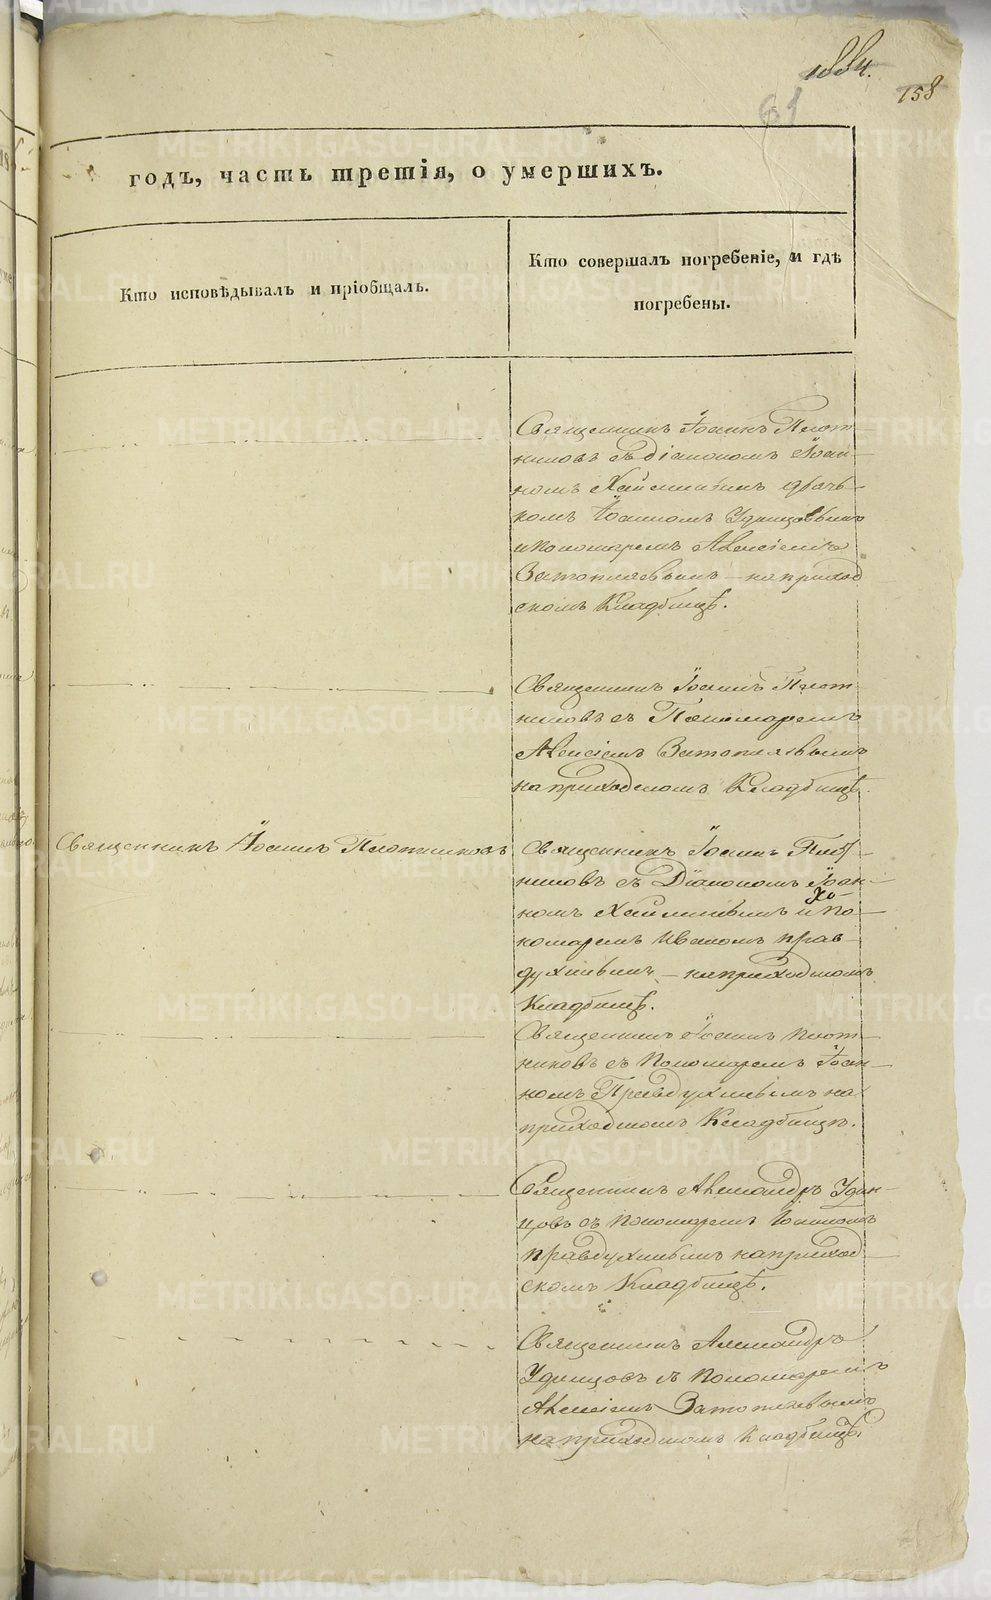 158
61
годъ, часть третія, о умершихъ.
Кто исповѣдывалъ и пріобщалъ.
Кто совершалъ погребеніе, и гдѣ
погребены.
Священникъ Іоаннъ Плот-
никовъ съ діакономъ Іоан-
номъ
комъ Іоанномъ Удинцовымъ
и пономаремъ Алексіемъ
Затопляевымъ - на приход
скомъ Кладбищѣ.
Священникъ Іоаннъ Плот
никовъ съ Пономаремъ
Алексіемъ Затопляевымъ
на приходскомъ Кладбищѣ.
Священникъ Іоаннъ Плотниковъ
Священникъ Іоаннъ Плот-
никовъ съ Діакономъ Іоан-
номъ и по-
номаремъ Иваномъ Прав-
духинымъ - на приходскомъ
Кладбищѣ.
Священникъ Іоаннъ Плот-
никовъ съ Пономаремъ Іоан-
номъ Правдухинымъ на
приходскомъ Кладбищѣ.
Священникъ Александръ Удин-
цовъ съ пономаремъ Іоанномъ
Правдухинымъ на приход-
скомъ Кладбищѣ.
Священникъ Александръ
Удинцовъ съ пономаремъ
Алексіемъ Затопляевымъ
на приходскомъ Кладбищѣ.
METRIKI.GASO-URAL.RU